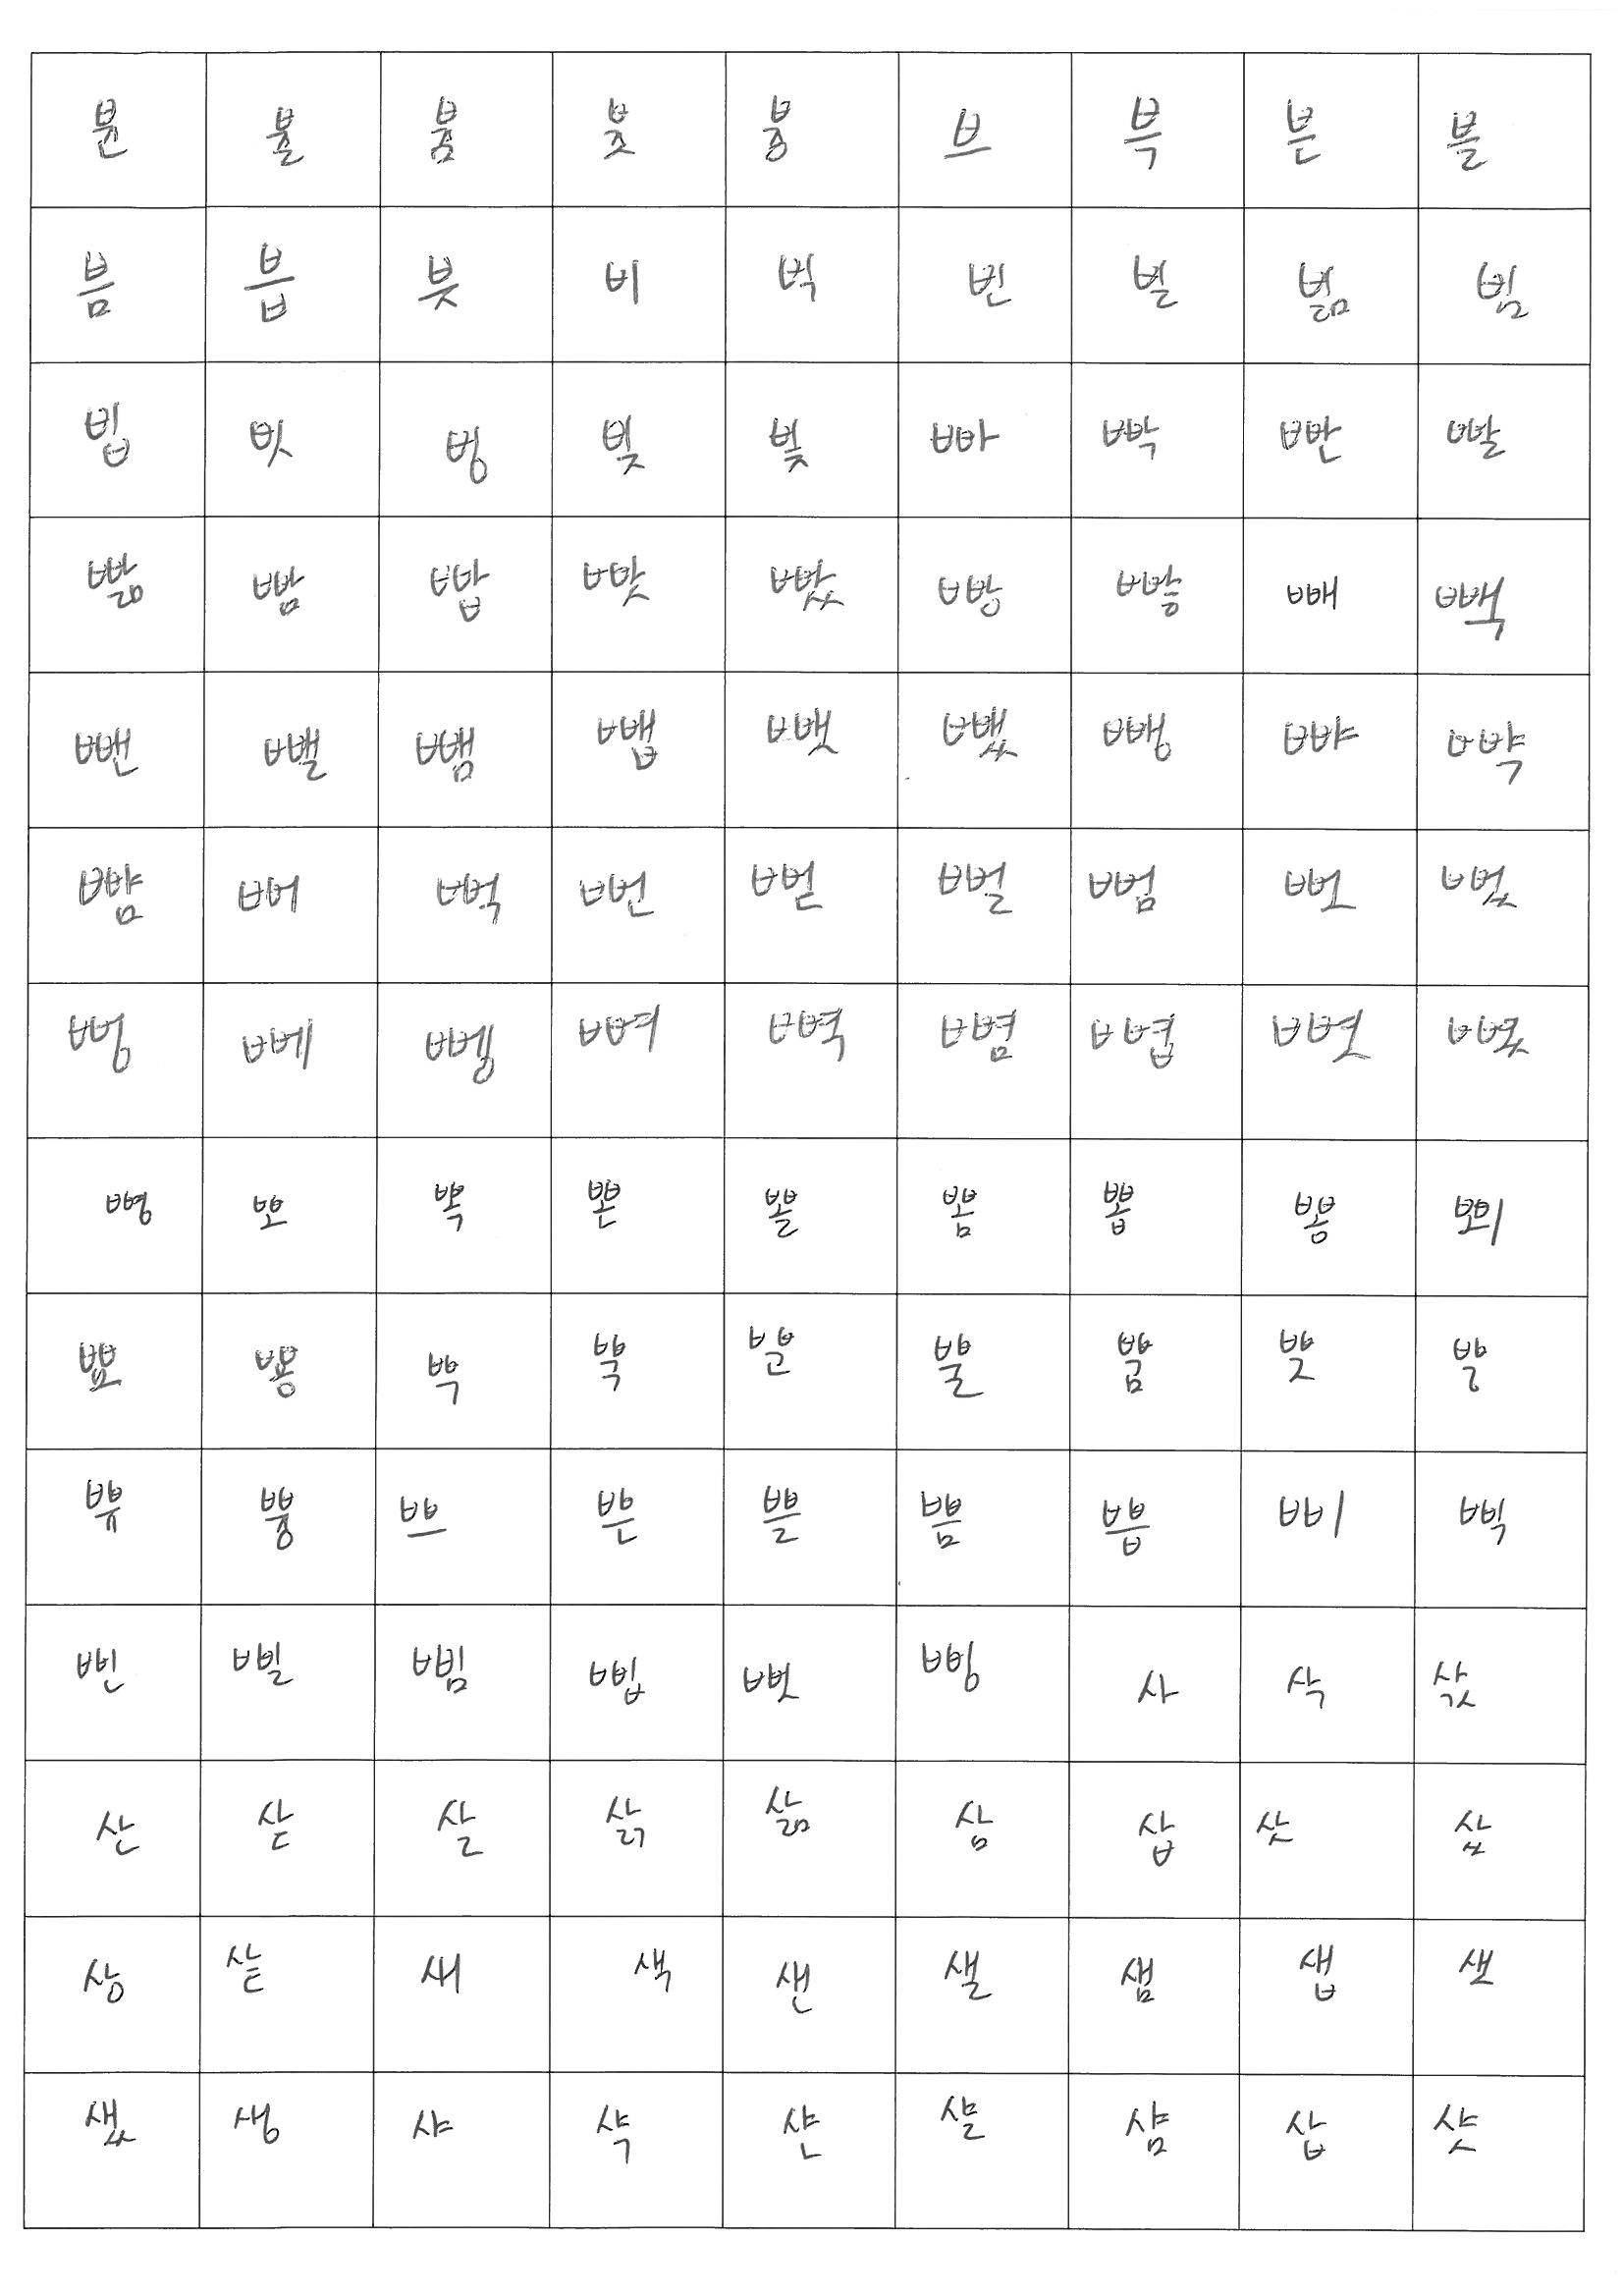 뷴 뷸 븀 븃 븅 브 븍 븐 블
븜 븝 븟 비 빅 빈 빌 빎 빔
빕 빗 빙 빚 빛 빠 빡 빤 빨
빪 빰 빱 빳 빴 빵 빻 빼 빽
뺀 뺄 뺌 뺍 뺏 뺐 뺑 뺘 뺙
뺨 뻐 뻑 뻔 뻗 뻘 뻠 뻣 뻤
뻥 뻬 뼁 뼈 뼉 뼘 뼙 뼛 뼜
뼝 뽀 뽁 뽄 뽈 뽐 뽑 뽕 뾔
뾰 뿅 뿍 뿍 뿐 뿔 뿜 뿟 뿡
쀼 쁑 쁘 쁜 쁠 쁨 쁩 삐 삑
삔 삘 삠 삡 삣 삥 사 삭 삯
산 삳 살 삵 삶 삼 삽 삿 샀
상 샅 새 색 샌 샐 샘 샙 샛
샜 생 샤 샥 샨 샬 샴 샵 샷